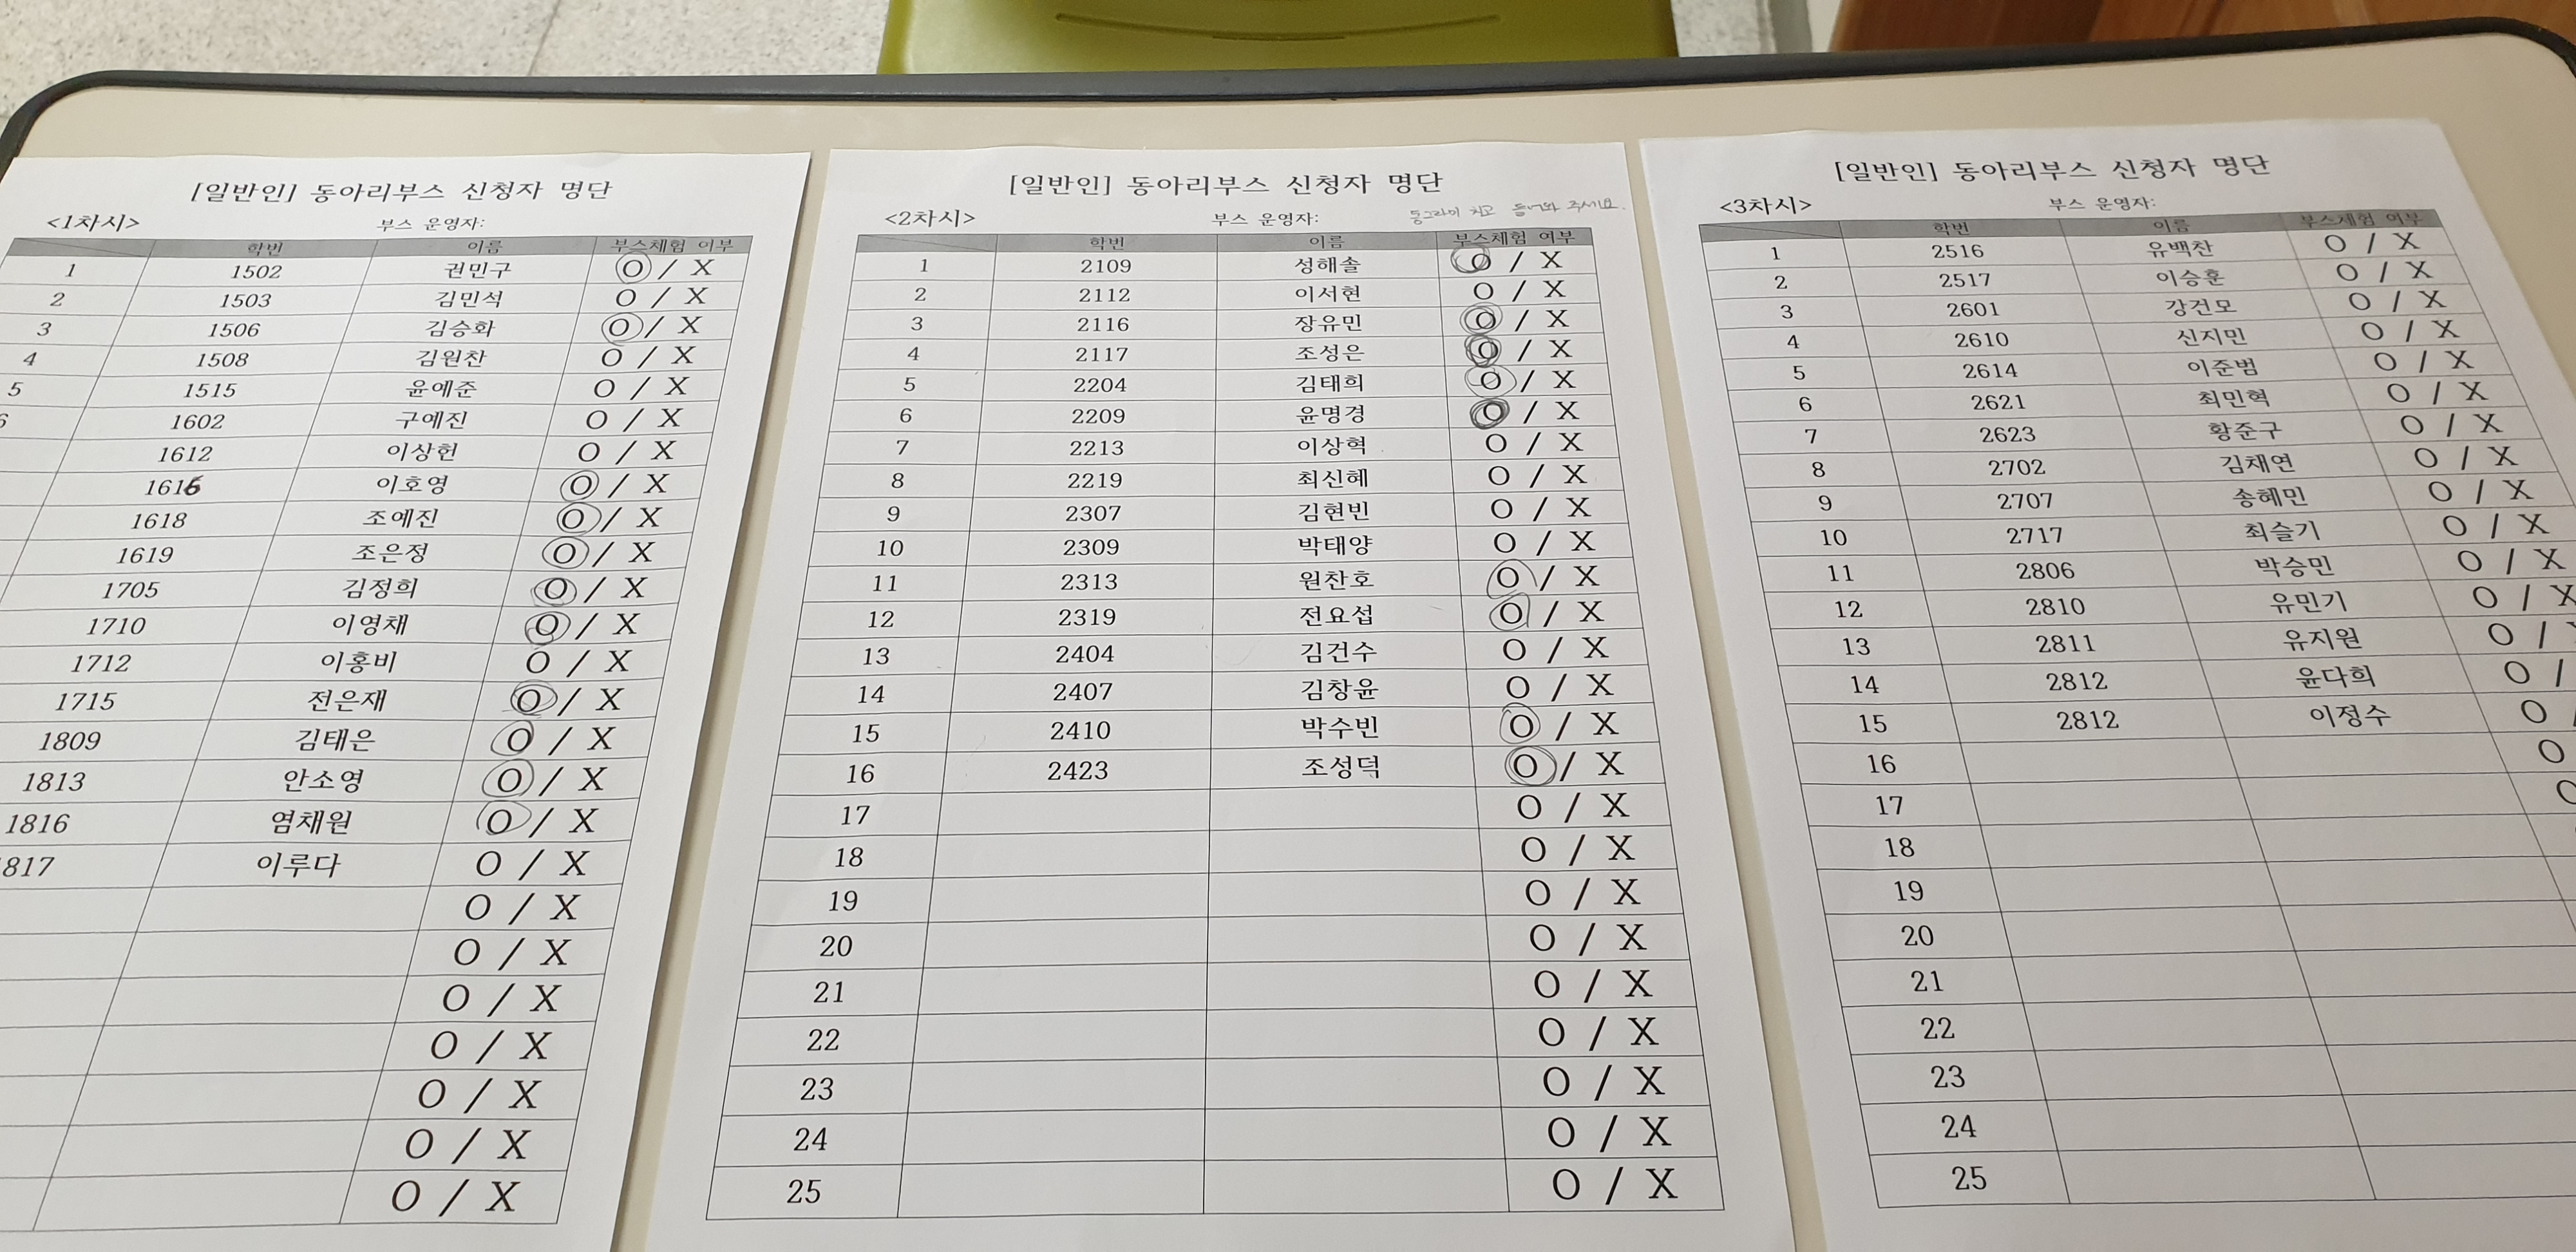 [일반인] 동아리부스 신청자 명단
<1차시>
부스 운영자:
학번 이름 부스체험 여부
1 1502 권민구 O / X
2 1503 김민석 O / X
3 1506 김승화 O / X
4 1508 김원찬 O / X
5 1515 윤예준 O / X
6 1602 구예진 O / X
1612 이상헌 O / X
1616 이호영 O / X
1618 조예진 O / X
1619 조은정 O / X
1705 김정희 O / X
1710 이영채 O / X
1712 이홍비 O / X
1715 전은재 O / X
1809 김태은 O / X
1813 안소영 O / X
1816 염채원 O / X
817 이루다 O / X
O / X
O / X
O / X
O / X
O / X
O / X
O / X
[일반인] 동아리부스 신청자 명단
<2차시>
부스 운영자:
동그라미 치고 들어와 주세요.
학번 이름 부스체험 여부
1 2109 성해솔 O / X
2 2112 이서현 O / X
3 2116 장유민 O / X
4 2117 조성은 O / X
5 2204 김태희 O / X
6 2209 윤명경 O / X
7 2213 이상혁 O / X
8 2219 최신혜 O / X
9 2307 김현빈 O / X
10 2309 박태양 O / X
11 2313 원찬호 O / X
12 2319 전요섭 O / X
13 2404 김건수 O / X
14 2407 김창윤 O / X
15 2410 박수빈 O / X
16 2423 조성덕 O / X
17 O / X
18 O / X
19 O / X
20 O / X
21 O / X
22 O / X
23 O / X
24 O / X
25 O / X
[일반인] 동아리부스 신청자 명단
<3차시>
부스 운영자:
학번 이름 부스체험 여부
1 2516 유백찬 O / X
2 2517 이승훈 O / X
3 2601 강건모 O / X
4 2610 신지민 O / X
5 2614 이준범 O / X
6 2621 최민혁 O / X
7 2623 황준구 O / X
8 2702 김채연 O / X
9 2707 송혜민 O / X
10 2717 최슬기 O / X
11 2806 박승민 O / X
12 2810 유민기 O / X
13 2811 유지원 O /
14 2812 윤다희 O /
15 2812 이정수 O
16 O
17
18
19
20
21
22
23
24
25